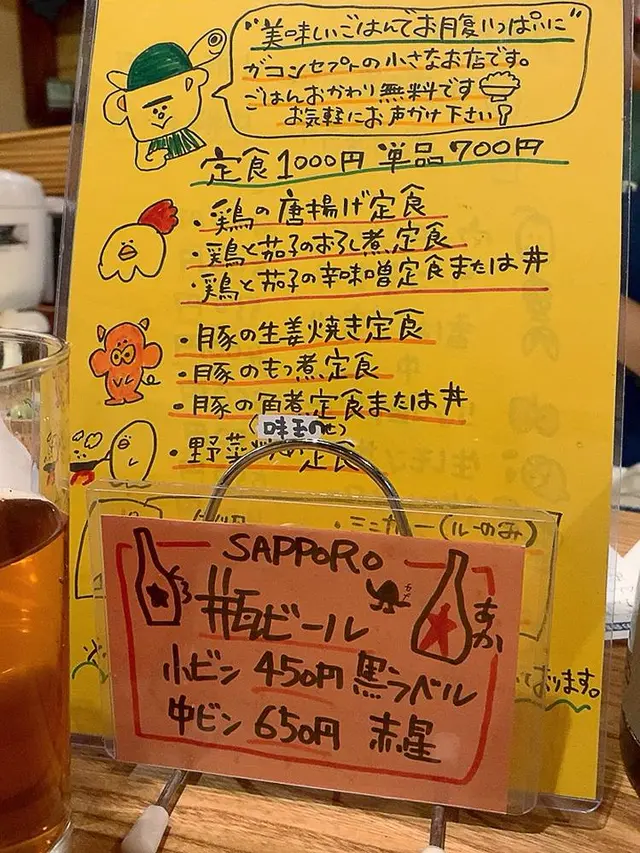 "美味しいごはんでお腹いっぱいに"
がコンセプトの小さなお店です。
ごはんおかわり無料です
お気軽にお声がけ下さい!
定食1000円 単品700円
・鶏の唐揚げ定食
・鶏と茄子のおろし煮定食
・鶏と茄子の辛味噌定食または丼
・豚の生姜焼き定食
・豚のもつ煮定食
・豚の角煮定食または丼
(味玉のせ)
・野菜炒め定食
・ミニカレー(ルーのみ)
おります。
SAPPORO
瓶ビール
あか
小ビン 450円 黒ラベル
中ビン 650円 赤星